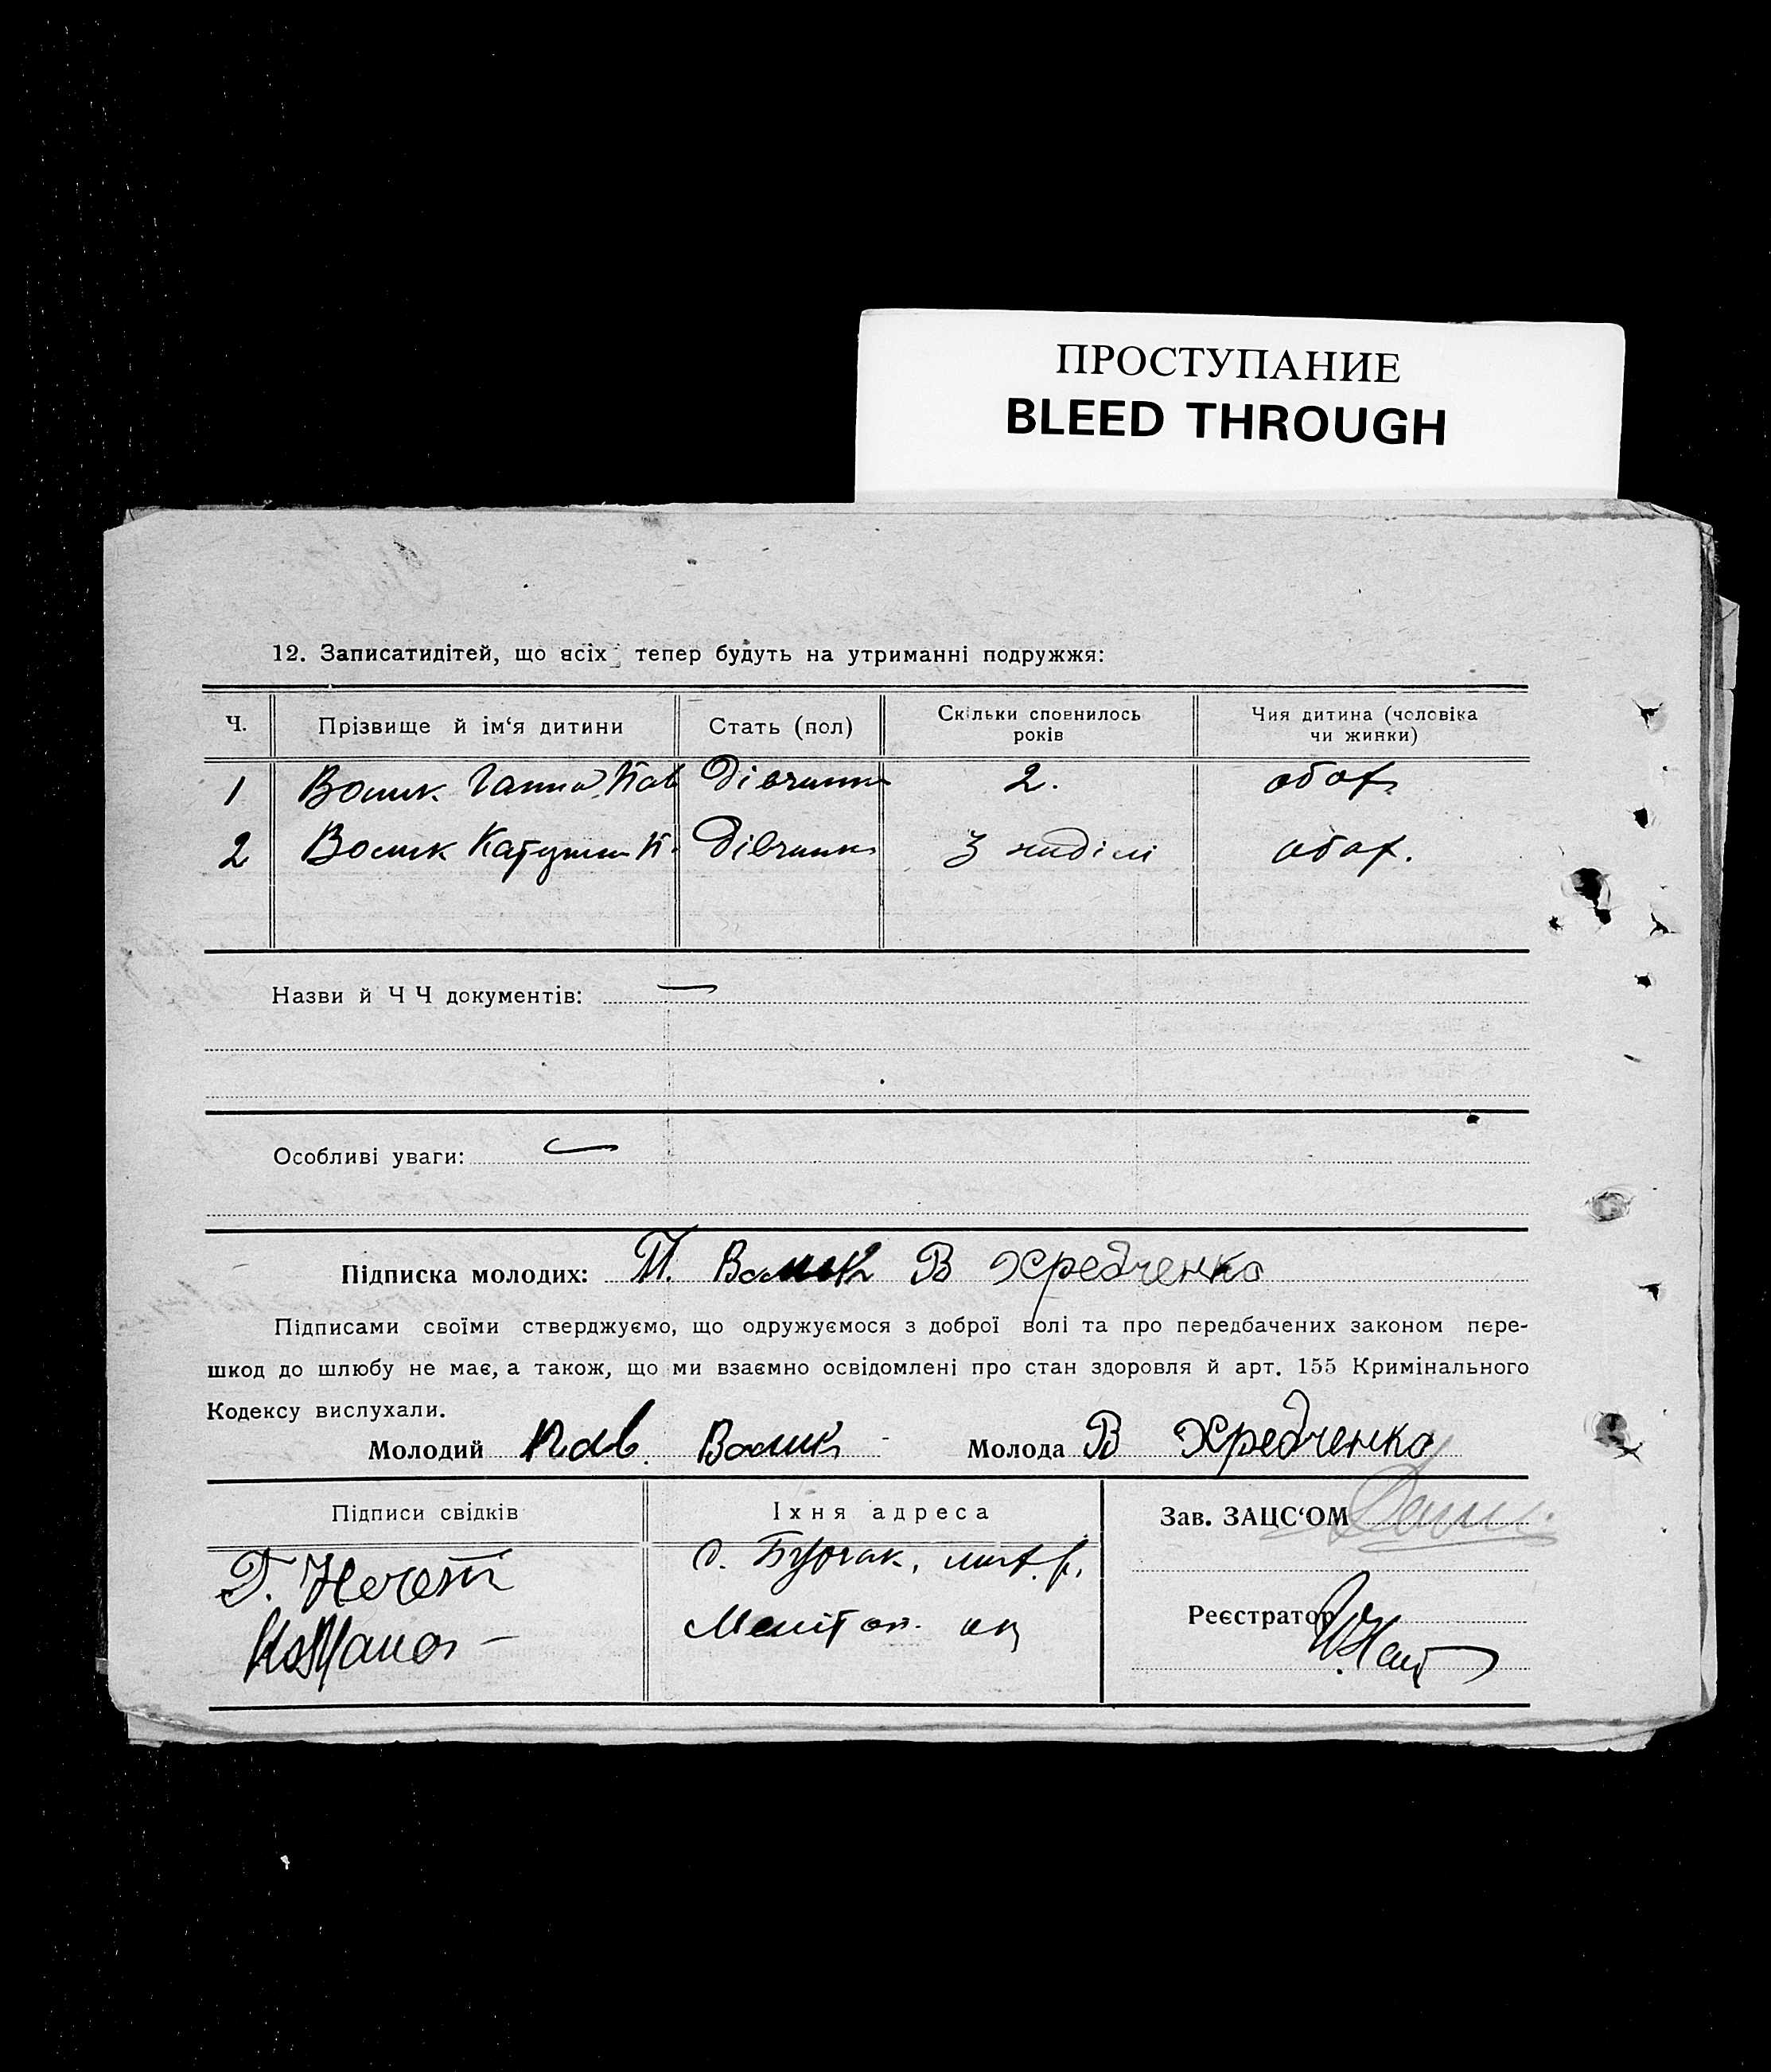 ПРОСТУПАНИЕ
BLEED THROUGH
12. Записатидітей, що всіх тепер будуть на утриманні подружжя:
Ч. Прізвище й ім‘я дитини Стать (пол) Скільки сповнилось років Чия дитина (чоловіка чи жинки)
1 Волик Ганна Пав Дівчинка 2. обох
2 Волик Катерина П. Дівчинка 3 неділі обох.
Назви й Ч Ч документів: —
Особливі уваги: —
Підписка молодих: П. Волик В Хредченко
Підписами своїми стверджуємо, що одружуємося з доброї волі та про передбачених законом пере-
шкод до шлюбу не має, а також, що ми взаємно освідомлені про стан здоровля й арт. 155 Кримінального
Кодексу вислухали.
Молодий Пав. Волик Молода В Хредченко
Підписи свідків Їхня адреса Зав. ЗАЦС‘ОМ
с. Бурчак,
Реєстратор
Меліт ок